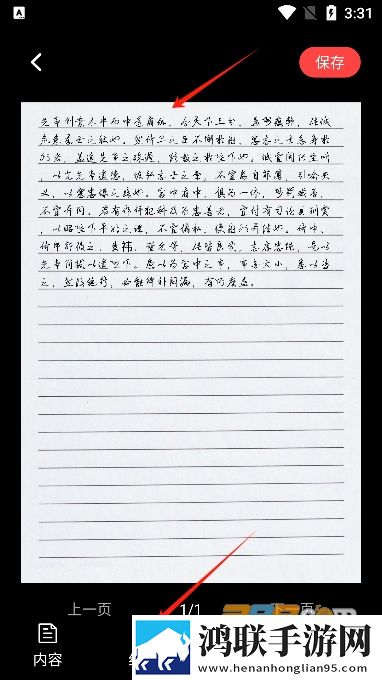 3:31
保存
先帝创业未半而中道崩殂，今天下三分，益州疲弊，此诚
危急存亡之秋也。然侍卫之臣不懈于内，忠志之士忘身于外
者，盖追先帝之殊遇，欲报之于陛下也。诚宜开张圣听
，以光先帝遗德，恢弘志士之气，不宜妄自菲薄，引喻失
义，以塞忠谏之路也。宫中府中，俱为一体，陟罚臧否，
不宜异同。若有作奸犯科及为忠善者，宜付有司论其刑赏
，以昭陛下平明之理，不宜偏私，使内外异法也。侍中、
侍郎郭攸之、费祎、董允等，此皆良实，志虑忠纯，是以
先帝简拔以遗陛下。愚以为宫中之事，事无大小，悉以咨
之，然后施行，必能裨补阙漏，有所广益。
上一页 1/1
内容
鸿联手游网
www.henanhonglian95.com